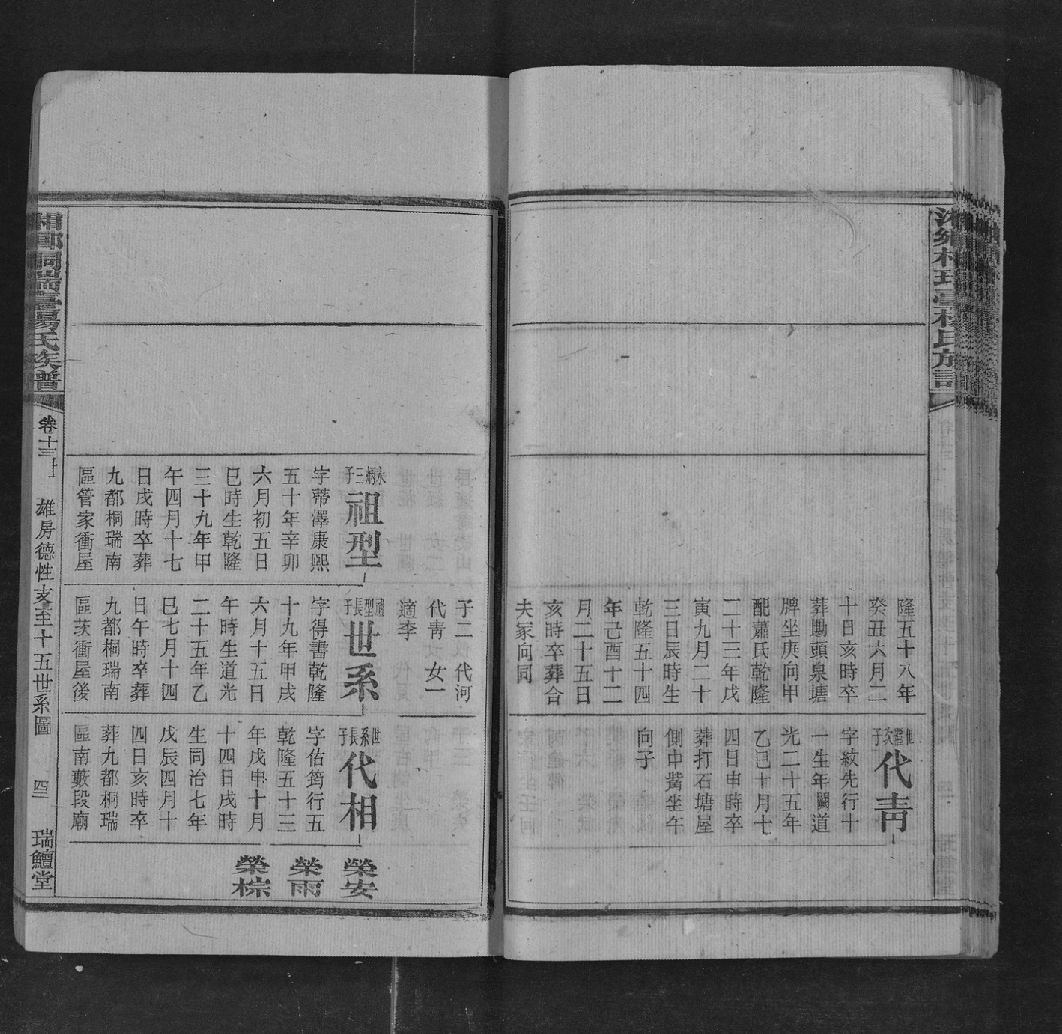 隆五十八年
癸丑六月二
十日亥時卒
葬勘頭泉塘
牌坐庚向甲
配蕭氏乾隆
二十三年戊
寅九月二十
三日辰時生
乾隆五十四
年己酉十二
月二十五日
亥時卒葬合
夫冢向同
代青
字紋先行十
一生年闕道
光二十五年
乙巳十月七
四日申時卒
葬打石塘屋
側中嘴坐午
向子
子二 代河
代青 女一
適李
永炳三子
祖型
字蒂澤康熙
五十年辛卯
六月初五日
巳時生乾隆
三十九年甲
午四月十七
日戌時卒葬
九都桐瑞南
區管家衝屋
祖型長子
世系
字得書乾隆
十九年甲戌
六月十五日
午時生道光
二十五年乙
巳七月十四
日午時卒葬
九都桐瑞南
區茨衝屋後
世系長子
代相
字佑筠行五
乾隆五十三
年戊申十月
十四日戌時
生同治七年
戊辰四月十
四日亥時卒
葬九都桐瑞
區南藪段廟
榮安
榮雨
榮棕
湘鄉桐瑞臺楊氏族譜
卷十三
雄房德性支至十五世系圖
瑞鱣堂